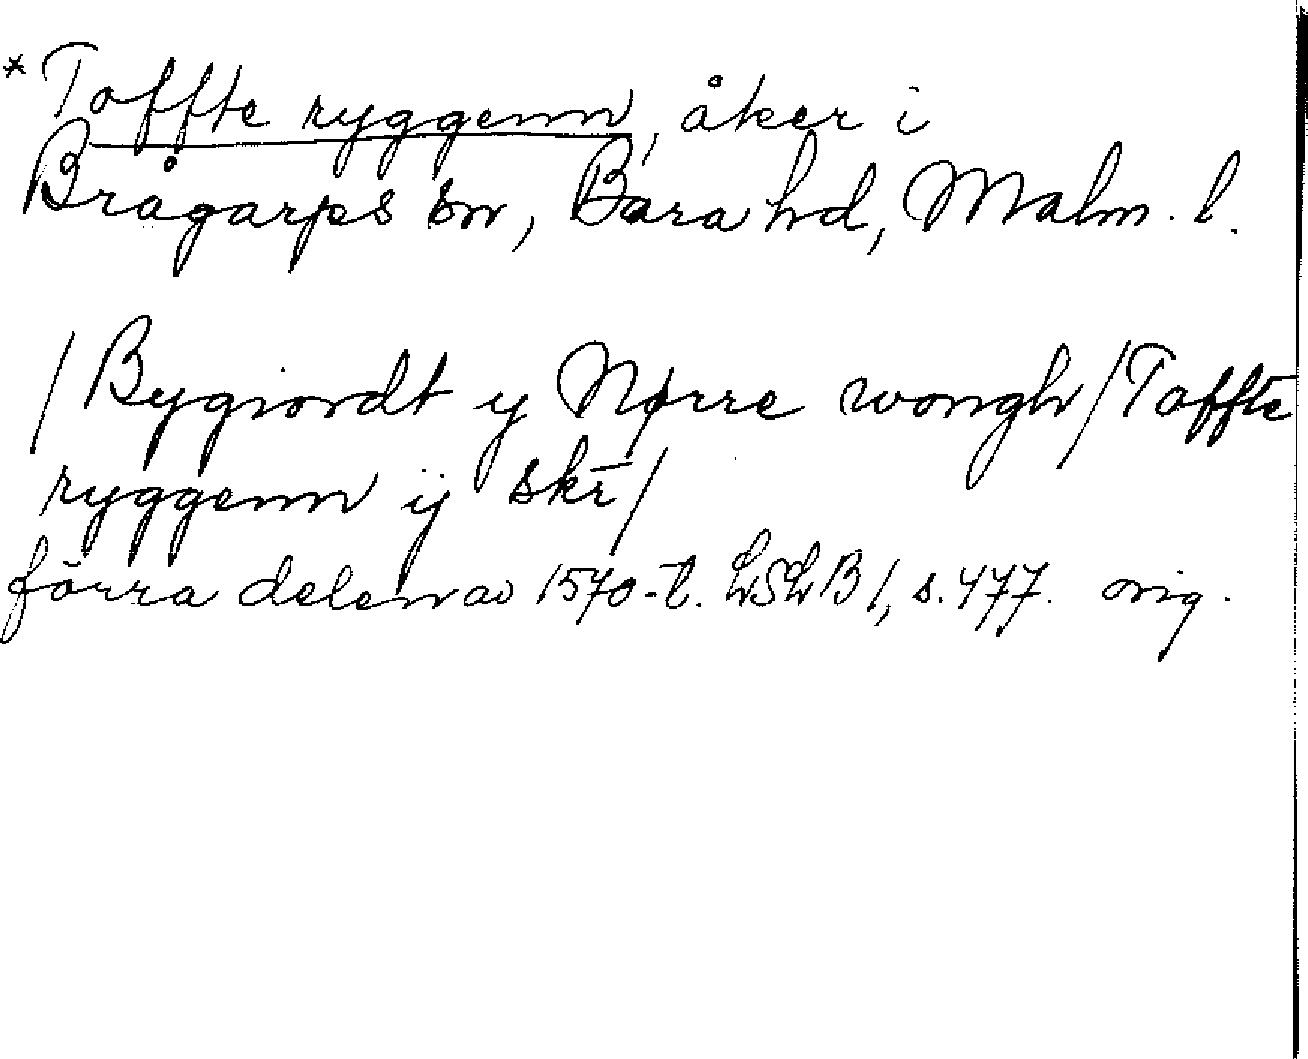 *Toffte ryggenn, åker i
Brågarps sn, Bara hd, Malm. l.
/Bygiordt y Nørre wongh/Toffte
ryggenn ij skr̄/
förra delen av 1570-t. LSLB 1, s.477. orig.